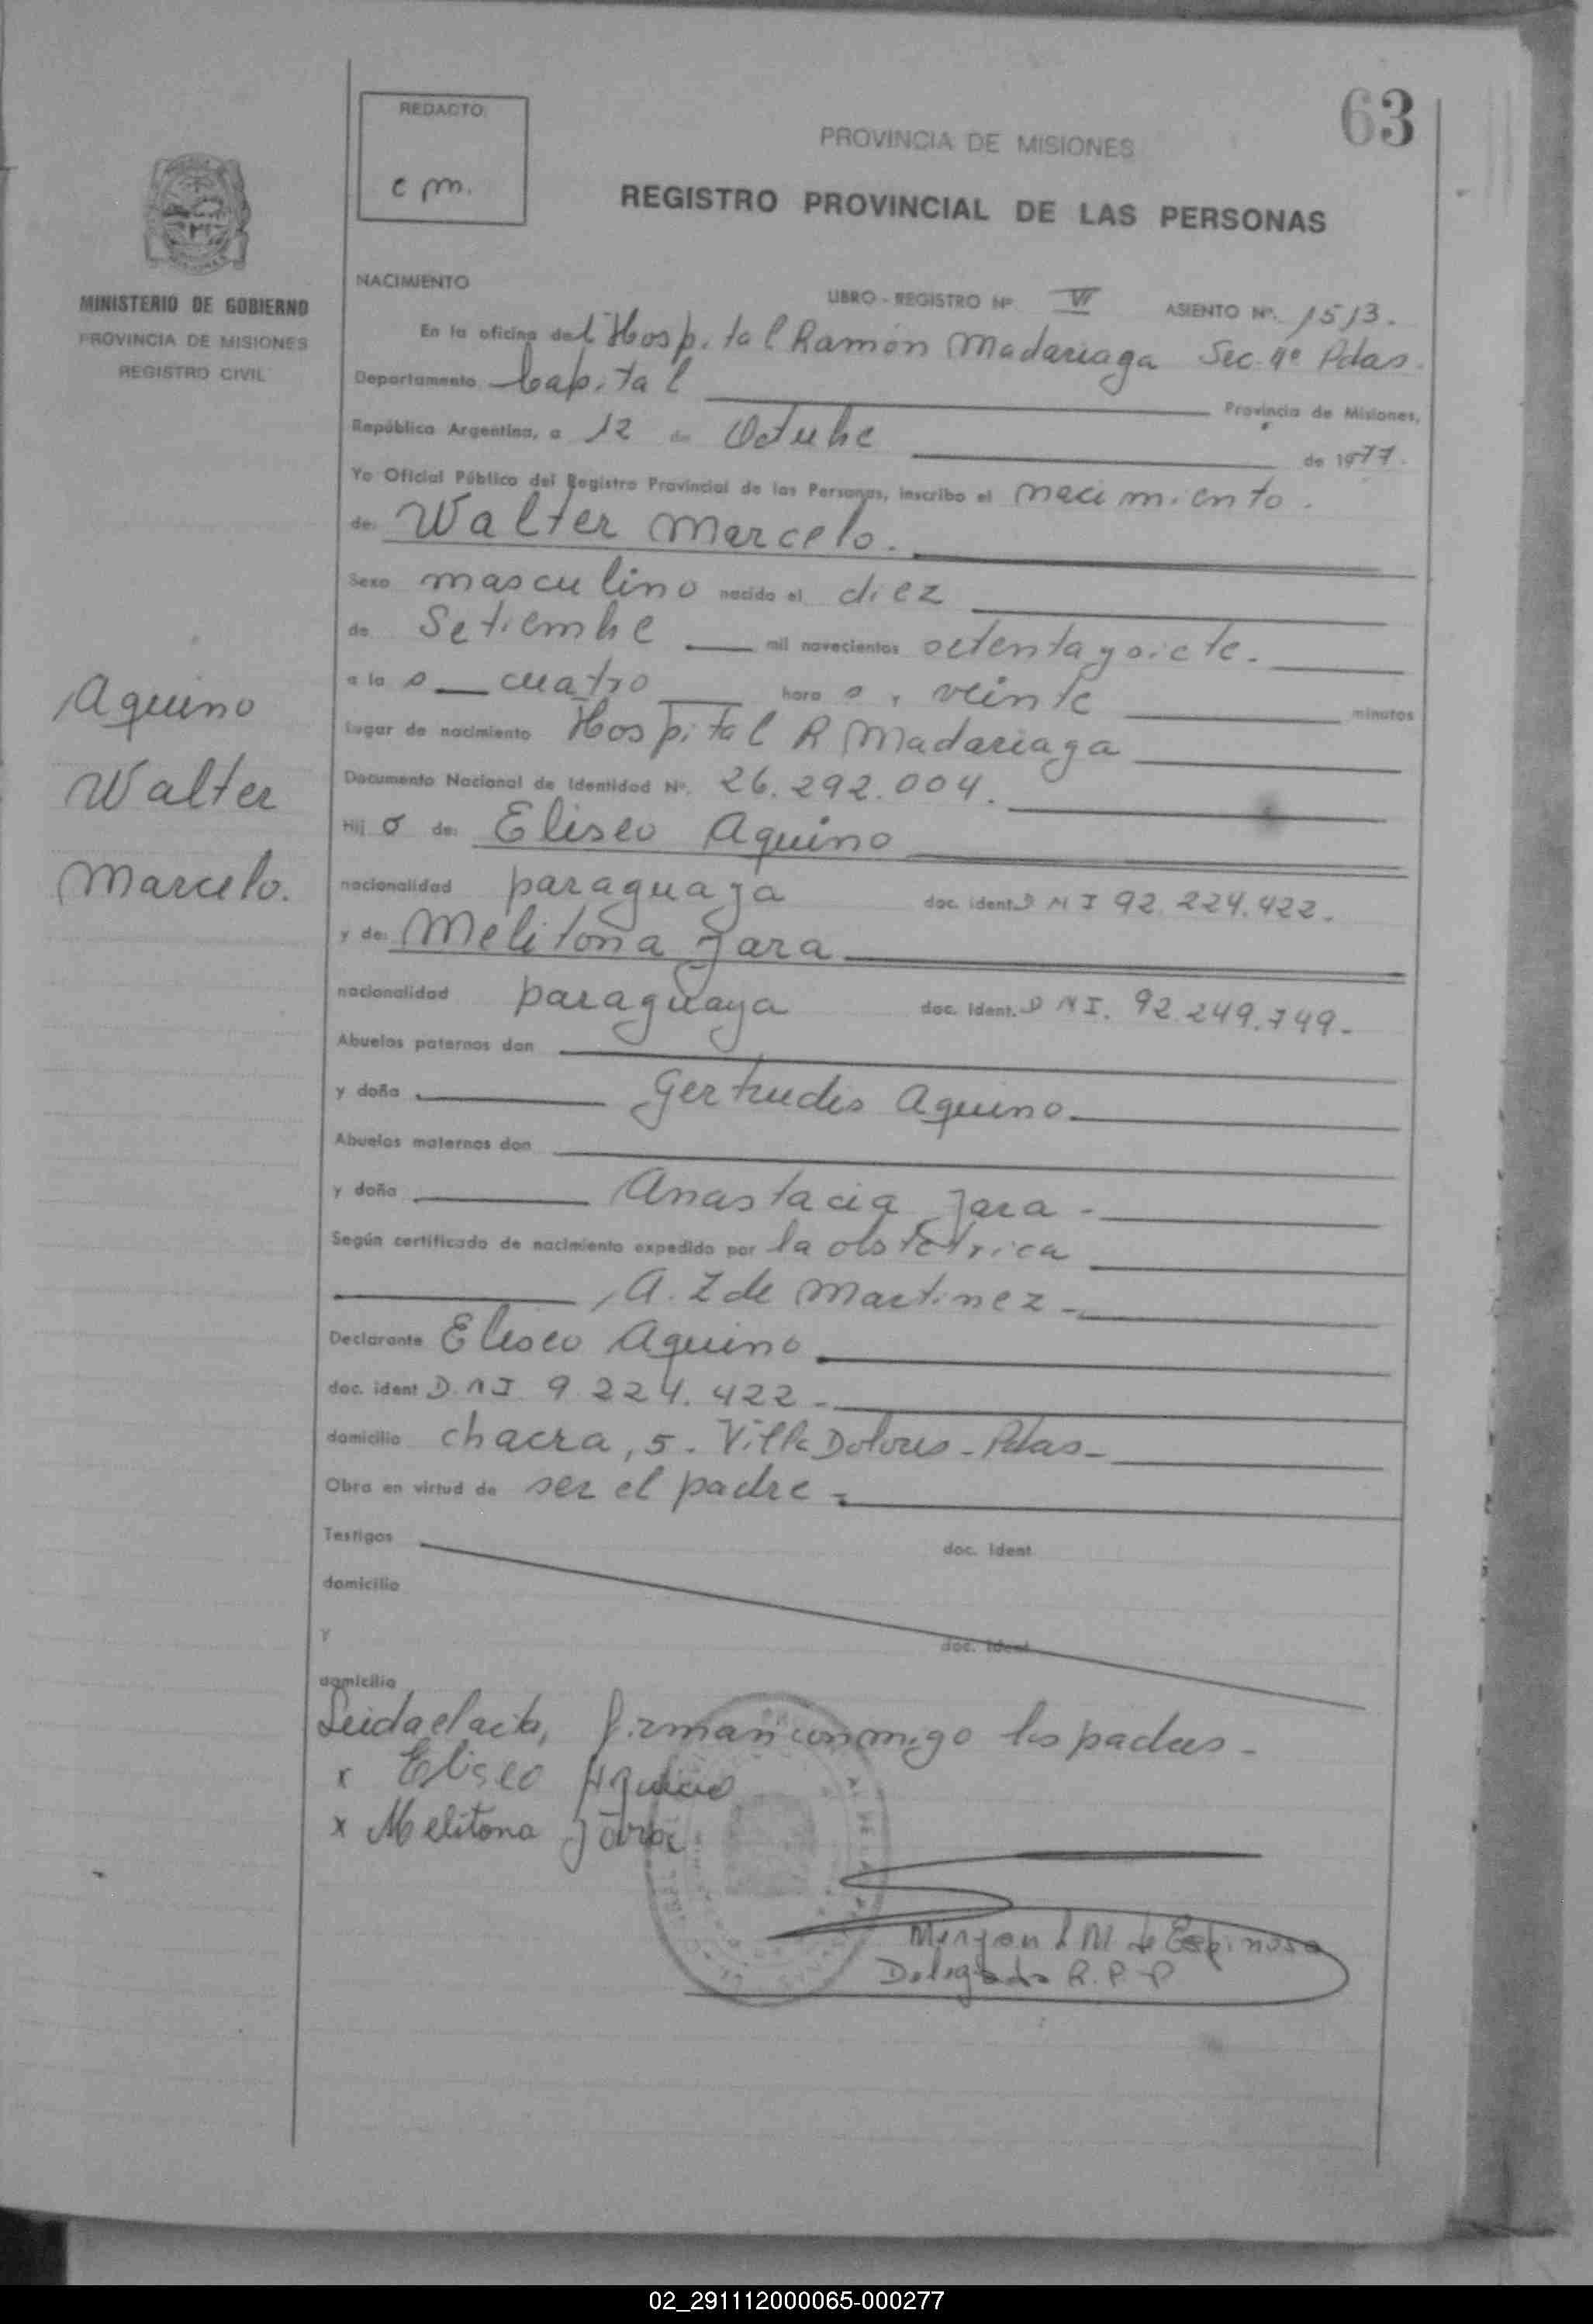 63
REDACTO
c m.
PROVINCIA DE MISIONES
REGISTRO PROVINCIAL DE LAS PERSONAS
MINISTERIO DE GOBIERNO
PROVINCIA DE MISIONES
REGISTRO CIVIL
NACIMIENTO
LIBRO - REGISTRO Nº VI ASIENTO Nº. 1513.
En la oficina del Hospital Ramón Madariaga Sec. 4ª Pdas.
Departamento Capital Provincia de Misiones,
República Argentina, a 12 de Octubre de 1977.
Yo Oficial Público del Registro Provincial de las Personas, inscribo el nacimiento.
de: Walter Marcelo.
Sexo masculino nacido el diez
de Setiembre mil novecientos setenta y siete.
a las cuatro horas, veinte minutos
lugar de nacimiento Hospital R Madariaga
Documento Nacional de Identidad Nº. 26.292.004.
Hijo de: Eliseo Aquino
nacionalidad paraguaya doc. ident. D N I 92.224.422.
y de: Melitona Jara
nacionalidad paraguaya doc. ident. D N I. 92.249.749-
Abuelos paternos don
y doña Gertrudis Aquino
Abuelos maternos don
y doña Anastacia Jara -
Según certificado de nacimiento expedido por la obstetrica
, A. Z de Martinez -
Declarante Eliseo Aquino
doc. ident D. N I 9 224. 422 -
domicilio chacra, 5. Villa Dolores - Pdas -
Obra en virtud de ser el padre -
Testigos doc. ident
domicilio
Y doc. ident
domicilio
Leida el acta, firman conmigo los padres -
x Eliseo Aquino
x Melitona Jara
de Espinosa
Delegada R. P. P
Aquino
Walter
Marcelo.
02_291112000065-000277